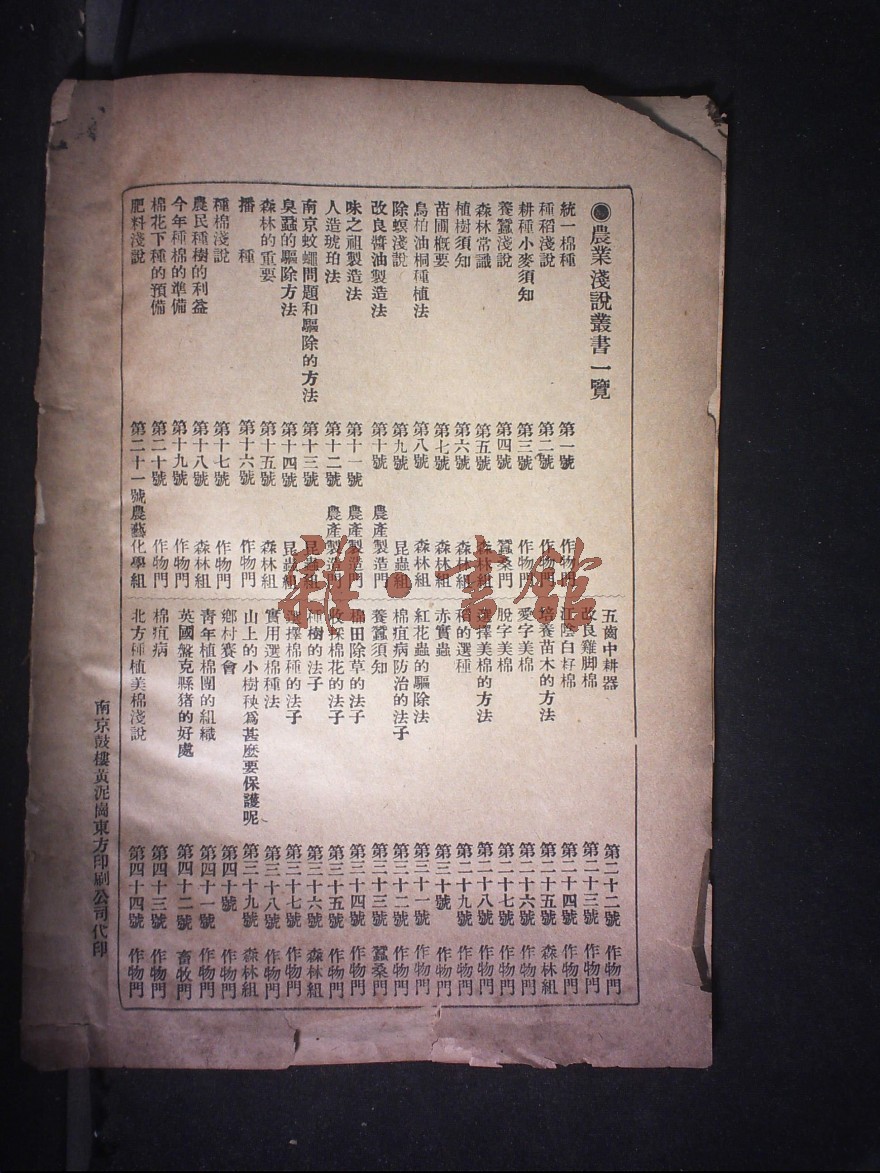 ●農業淺說叢書一覽
統一棉種 第一號 作物門
種稻淺說 第二號 作物門
耕種小麥須知 第三號 作物門
養蠶淺說 第四號 蠶桑門
森林常識 第五號 森林組
植樹須知 第六號 森林組
苗圃概要 第七號 森林組
烏桕油桐種植法 第八號 森林組
除螟淺說 第九號 昆蟲組
改良醬油製造法 第十號 農產製造門
味之祖製造法 第十一號 農產製造門
人造琥珀法 第十二號 農產製造門
南京蚊蠅問題和驅除的方法 第十三號 昆蟲組
臭蟲的驅除方法 第十四號 昆蟲組
森林的重要 第十五號 森林組
播種 第十六號 作物門
種棉淺說 第十七號 作物門
農民種樹的利益 第十八號 森林組
今年種棉的準備 第十九號 作物門
棉花下種的預備 第二十號 作物門
肥料淺說 第二十一號 農藝化學組
五齒中耕器 第二十二號 作物門
改良雞脚棉 第二十三號 作物門
江陰白籽棉 第二十四號 作物門
培養苗木的方法 第二十五號 森林組
愛字美棉 第二十六號 作物門
脫字美棉 第二十七號 作物門
選擇美棉的方法 第二十八號 作物門
稻的選種 第二十九號 作物門
赤實蟲 第三十號 作物門
紅花蟲的驅除法 第三十一號 作物門
棉疽病防治的法子 第三十二號 作物門
養蠶須知 第三十三號 蠶桑門
棉田除草的法子 第三十四號 作物門
收採棉花的法子 第三十五號 作物門
種樹的法子 第三十六號 森林組
選擇棉種的法子 第三十七號 作物門
實用選棉種法 第三十八號 作物門
山上的小樹秧爲甚麽要保護呢 第三十九號 森林組
鄉村賽會 第四十號 作物門
靑年植棉團的組織 第四十一號 作物門
英國盤克縣猪的好處 第四十二號 畜牧門
棉疽病 第四十三號 作物門
北方種植美棉淺說 第四十四號 作物門
南京鼓樓黃泥崗東方印刷公司代印
雜·書館